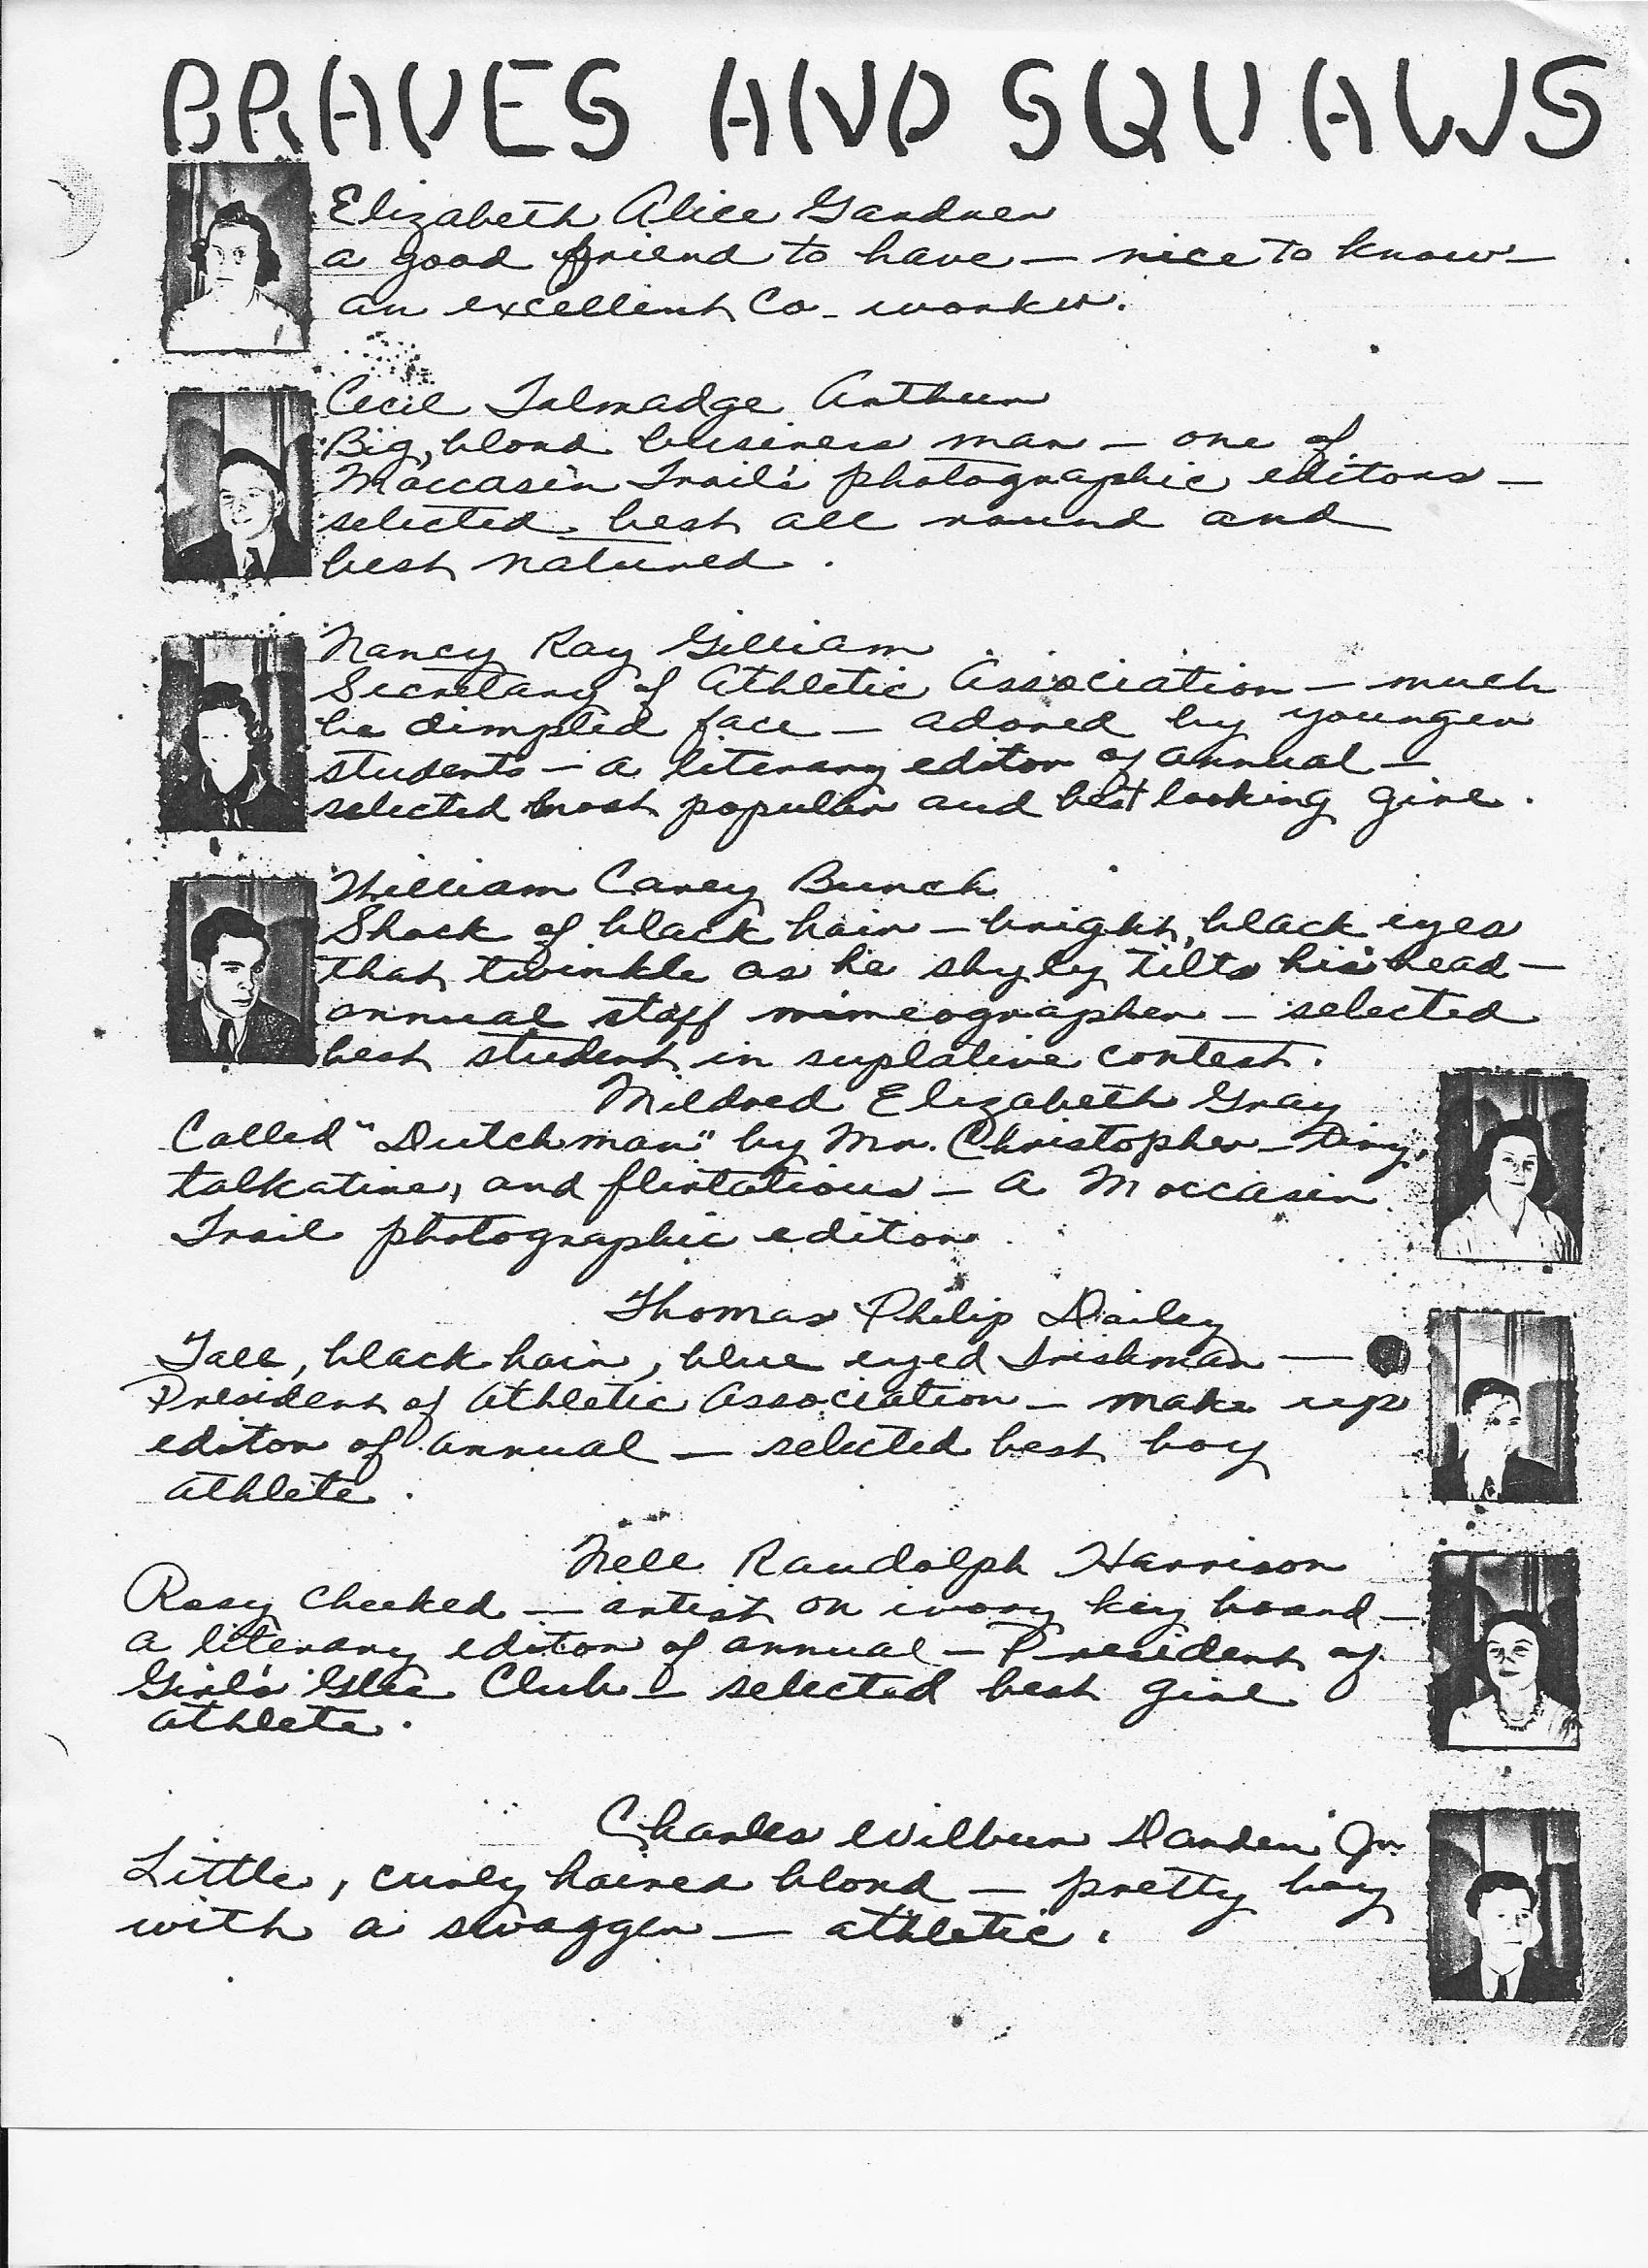 BRAVES AND SQUAWS
Elizabeth Alice Gardner
a good friend to have — nice to know —
an excellent Co-worker.
Cecil Talmadge Arthur
Big, blond business man — one of
Moccasin Trail's photographic editors —
selected best all round and
best natured.
Nancy Ray Gilliam
Secretary of Athletic Association — much
be dimpled face — adored by younger
students — a literary editor of annual —
selected most popular and best looking girl.
William Carey Bunch
Shock of black hair — bright, black eyes
that twinkle as he shyly tilts his head —
annual staff mimeographer — selected
best student in suplative contest.
Mildred Elizabeth Gray
Called "Dutchman" by Mr. Christopher — tiny,
talkative, and flirtatious — a Moccasin
Trail photographic editor.
Thomas Philip Dailey
Tall, black hair, blue eyed Irishman —
President of Athletic Association — make up
editor of annual — selected best boy
athlete.
Nell Randolph Harrison
Rosy cheeked — artist on ivory key board —
a literary editor of annual — President of
Girl's Glee Club — selected best girl
athlete.
Charles Wilbur Darden Jr.
Little, curly haired blond — pretty boy
with a swagger — athletic.